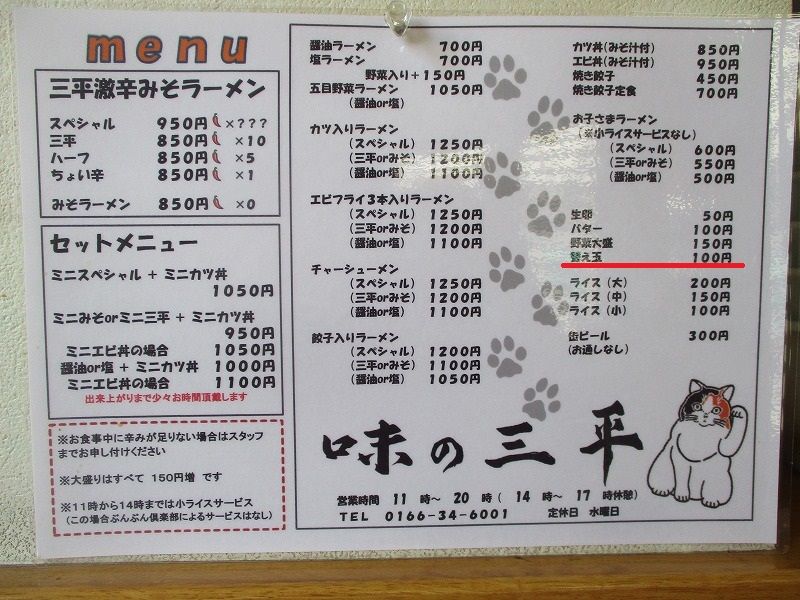 menu
三平激辛みそラーメン
スペシャル 950円 ×???
三平 850円 ×10
ハーフ 850円 ×5
ちょい辛 850円 ×1
みそラーメン 850円 ×0
セットメニュー
ミニスペシャル + ミニカツ丼
1050円
ミニみそorミニ三平 + ミニカツ丼
950円
ミニエビ丼の場合 1050円
醤油or塩 + ミニカツ丼 1000円
ミニエビ丼の場合 1100円
出来上がりまで少々お時間頂戴します
※お食事中に辛みが足りない場合はスタッフ
までお申し付けください
※大盛りはすべて 150円増 です
※11時から14時までは小ライスサービス
(この場合ぶんぶん倶楽部によるサービスはなし)
醤油ラーメン 700円
塩ラーメン 700円
野菜入り+150円
五目野菜ラーメン 1050円
(醤油or塩)
カツ入りラーメン
(スペシャル) 1250円
(三平orみそ) 1200円
(醤油or塩) 1100円
エビフライ3本入りラーメン
(スペシャル) 1250円
(三平orみそ) 1200円
(醤油or塩) 1100円
チャーシューメン
(スペシャル) 1250円
(三平orみそ) 1200円
(醤油or塩) 1100円
餃子入りラーメン
(スペシャル) 1200円
(三平orみそ) 1100円
(醤油or塩) 1050円
カツ丼(みそ汁付) 850円
エビ丼(みそ汁付) 950円
焼き餃子 450円
焼き餃子定食 700円
お子さまラーメン
(※小ライスサービスなし)
(スペシャル) 600円
(三平orみそ) 550円
(醤油or塩) 500円
生卵 50円
バター 100円
野菜大盛 150円
替え玉 100円
ライス(大) 200円
ライス(中) 150円
ライス(小) 100円
缶ビール 300円
(お通しなし)
味の三平
営業時間 11時〜20時(14時〜17時休憩)
TEL 0166-34-6001 定休日 水曜日